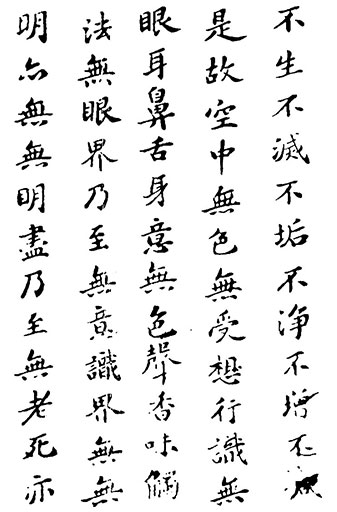 不生不滅不垢不浄不增不
是故空中無色無受想行識無
眼耳鼻舌身意無色聲香味觸
法無眼界乃至無意識界無無
明亦無無明盡乃至無老死亦